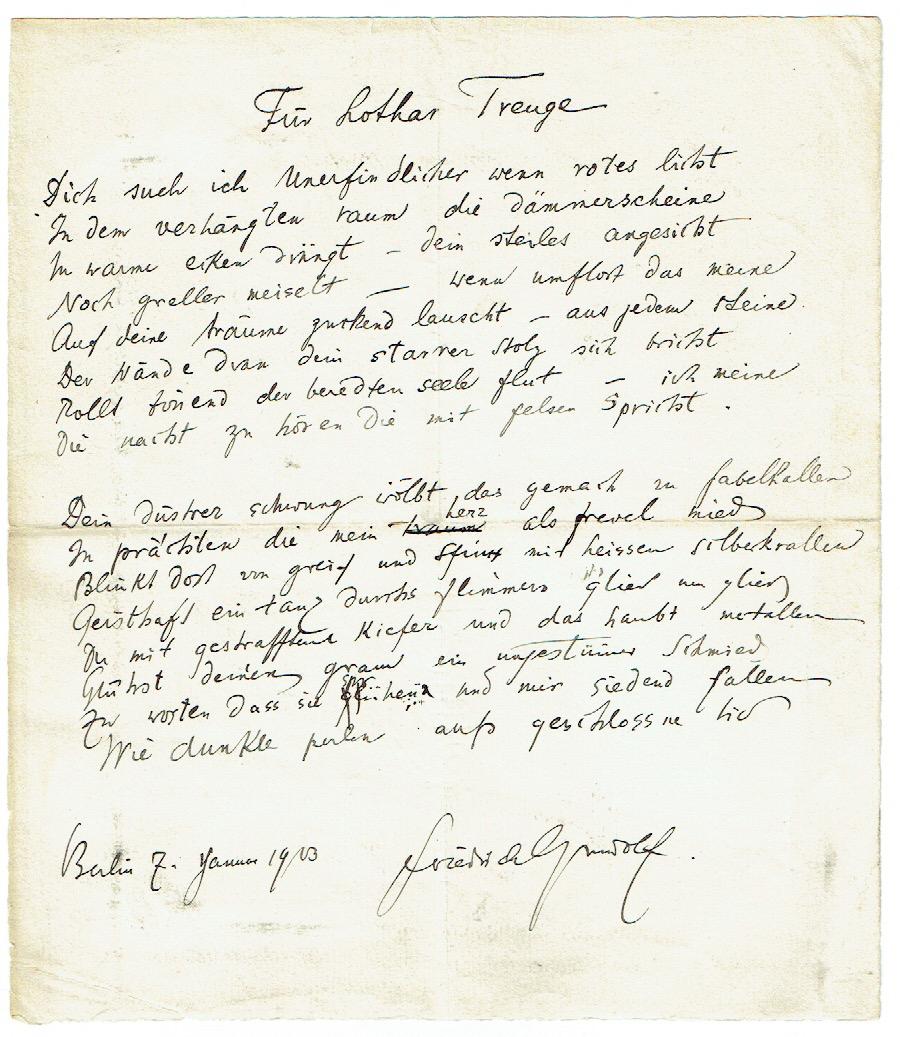 Für Lothar Treuge
Dich such ich Unerfindlicher wenn rotes licht
In dem verhängten raum die dämmerscheine
In warme ecken drängt – dein steiles angesicht
Noch greller meiselt – wenn umflort das meine
Auf deine träume zuckend lauscht – aus jedem steine
Der wände dran dein starrer stolz sich bricht
Rollt tönend der beredten seele flut – ich meine
Die nacht zu hören die mit felsen spricht .
Dein düstrer schwung wölbt das gemach zu fabelhallen
herz
In prächten die mein traum als frevel mied
Blinkt dort von greif und Sfinx mit heissen silberkrallen
Geisthaft ein tanz durchs flimmern glied um glied
Du mit gestrafftem Kiefer und das haubt metallen
Glühst deinen gram ein ungestümer Schmied
Zu worten dass sie sprühen und mir siedend fallen
Wie dunkle perlen aufs geschlossne lid
Berlin 7. Januar 1903 Friedrich Gundolf .